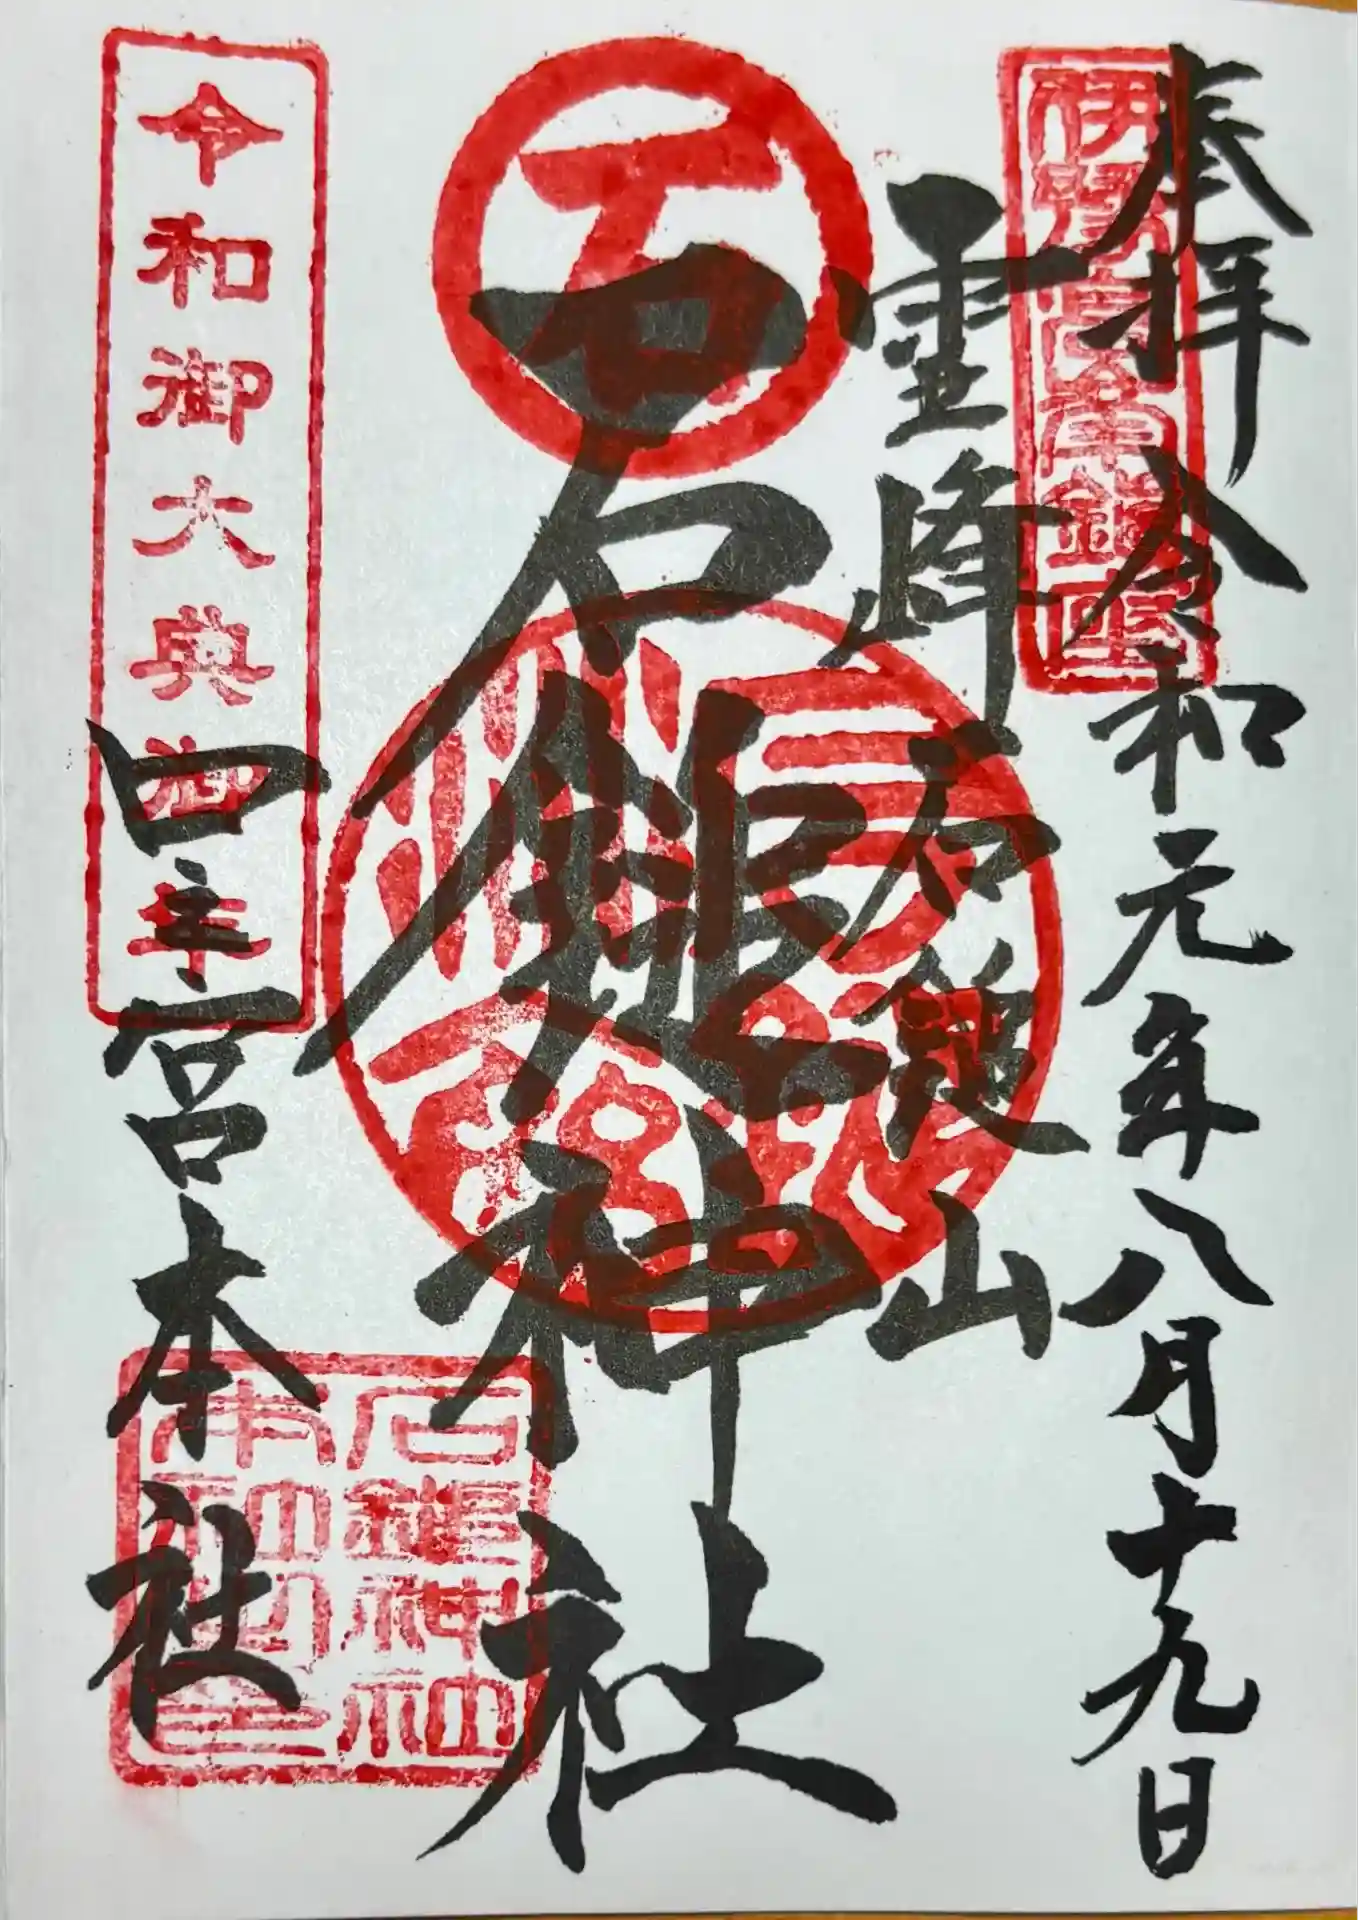 奉拝 令和元年八月十九日
霊峰 石鎚山
石
石鎚神社
令和御大典御年
口之宮本社
石鎚神社